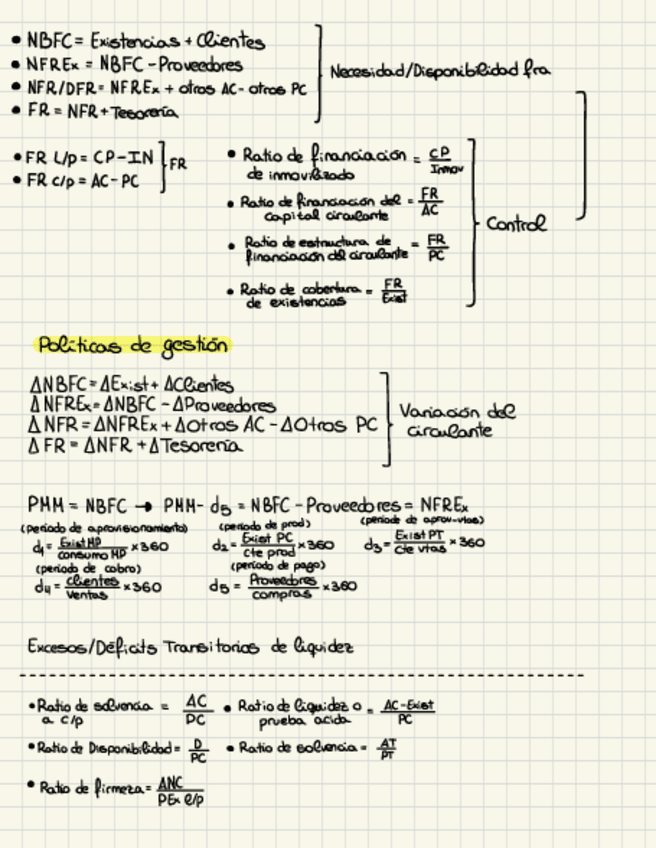 • NBFC = Existencias + Clientes
• NFREx = NBFC - Proveedores
• NFR/DFR = NFREx + otros AC - otros PC
• FR = NFR + Tesorería
Necesidad/Disponibilidad fra
• FR L/p = CP - IN
• FR c/p = AC - PC
FR
• Ratio de financiación de inmovilizado = CP/Inmov
• Ratio de financiación del capital circulante = FR/AC
• Ratio de estructura de financiación del circulante = FR/PC
• Ratio de cobertura de existencias = FR/Exist
Control
Políticas de gestión
ΔNBFC = ΔExist + ΔClientes
ΔNFREx = ΔNBFC - ΔProveedores
ΔNFR = ΔNFREx + ΔOtros AC - ΔOtros PC
ΔFR = ΔNFR + ΔTesorería
Variación del circulante
PMM = NBFC → PMM - d5 = NBFC - Proveedores = NFREx
(periodo de aprovisionamiento) (periodo de prod) (periodo de aprov-vtas)
d1 = Exist MP/consumo MP × 360 d2 = Exist PC/cte prod × 360 d3 = Exist PT/Cte vtas × 360
(periodo de cobro) (periodo de pago)
d4 = Clientes/Ventas × 360 d5 = Proveedores/compras × 360
Excesos/Déficits Transitorios de liquidez
• Ratio de solvencia a c/p = AC/PC • Ratio de liquidez o prueba acida = AC-Exist/PC
• Ratio de Disponibilidad = D/PC • Ratio de solvencia = AT/PT
• Ratio de firmeza = ANC/PEx l/p